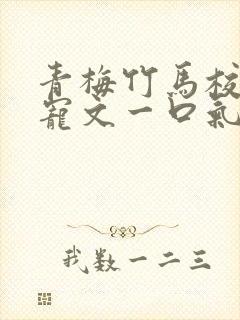 青梅竹馬校
寵文一口氣
我数一二三